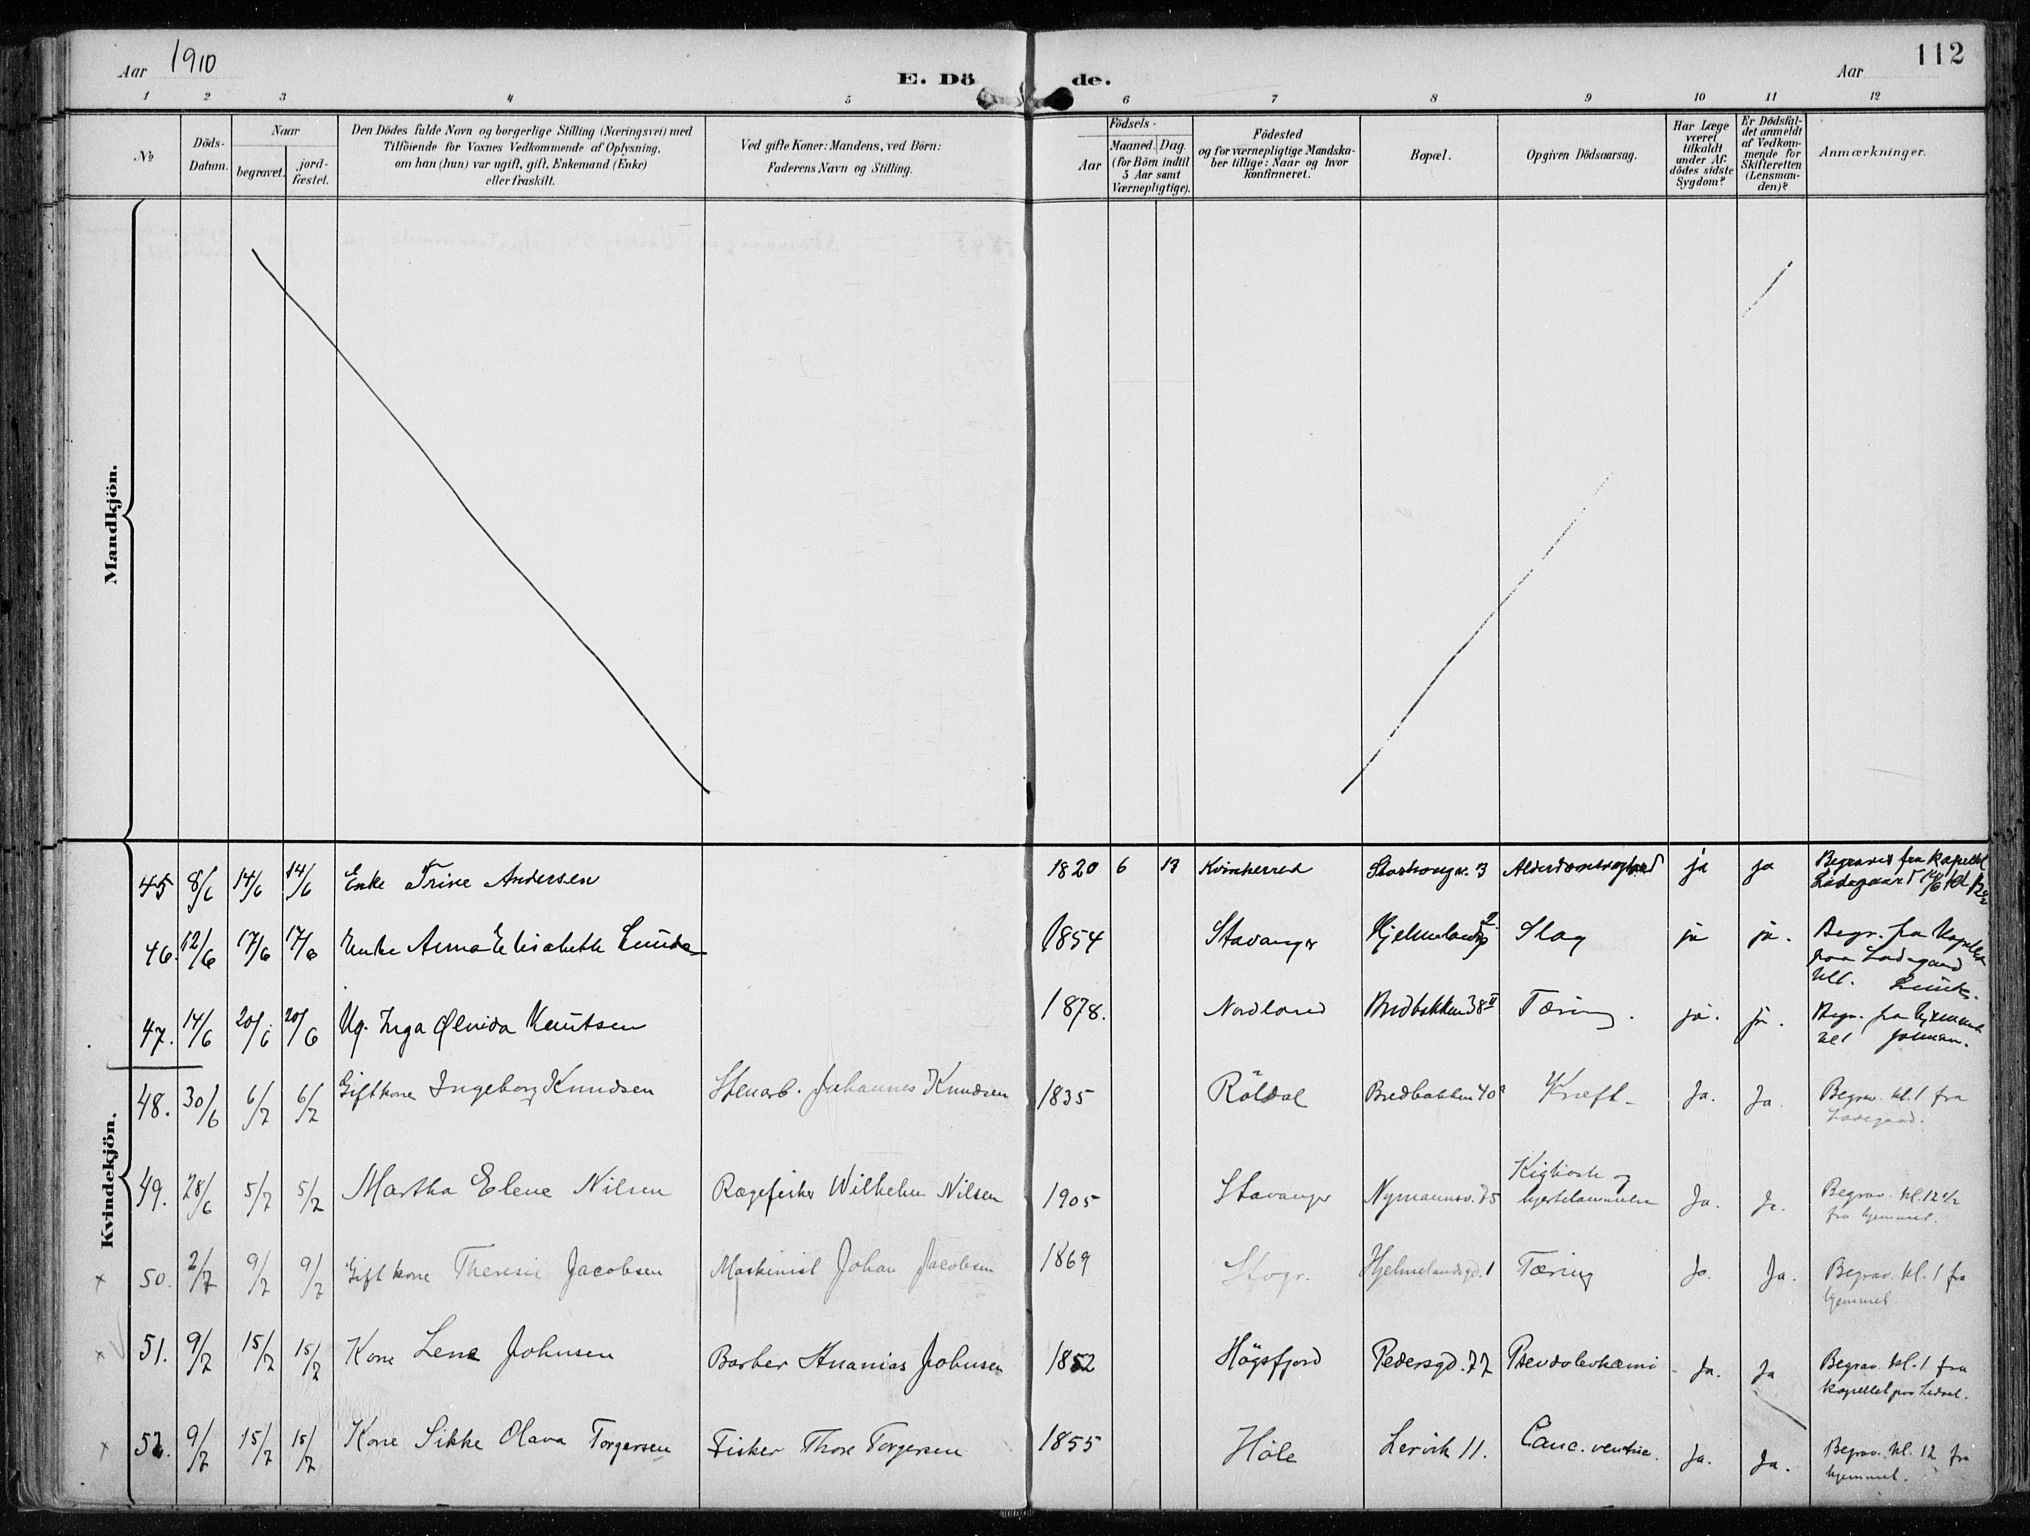 Aar 1910
E. Dö de.
Aar
112
1 2 3 4 5 6 7 8 9 10 11 12
No
Döds-Datum.
Naar
begravet.
jord-fæstet.
Den Dödes fulde Navn og borgerlige Stilling (Næringsvei) med
Tilföiende for Voxnes Vedkommende af Oplysning,
om han (hun) var ugift, gift, Enkemand (Enke)
eller fraskilt.
Ved gifte Koner: Mandens, ved Börn:
Faderens Navn og Stilling.
Födsels-
Aar
Maaned. Dag.
(for Börn indtil
5 Aar samt
Værnepligtige).
Födested
og for værnepligtige Mandska-
ber tillige: Naar og hvor
Konfirmeret.
Bopæl.
Opgiven Dödsaarsag.
Har Læge
været
tilkaldt
under Af-
dödes sidste
Sygdom?
Er Dødsfal-
det anmeldt
af Vedkom-
mende for
Skifteretten
(Lensman-
den)?
Anmærkninger.
Mandkjön.
Kvindekjön.
45 8/6 14/6 14/6 Enke Trine Andersen 1820 6 13 Kvinherred ja ja Begraves fra Kapellet
Ladegaard 14/6 kl
46. 12/6 17/6 17/6 Enke Anna Elisabeth 1854 Stavanger Slag ja ja. Begr. fra Kapellet
paa Ladegaard
kl 1.
47. 14/6 20/6 20/6 Ug. Inga Ølvida Knutsen 1878. Nordland Bredbakken 38 II Tæring. ja. ja. Begr. fra Hjemmet
kl 1
48. 30/6 6/7 6/7 Gift kone Ingeborg Knudsen Stenarb. Johannes Knudsen 1835 Röldal Bredbakken 40 Kræft Ja. Ja Begrav. kl. 1 fra
Ladegaard.
49. 28/6 5/7 5/7 Martha Elene Nilsen Wilhelm Nilsen 1905 Stavanger Nymannsv. 75 Kighoste og
Ja. Ja. Begrav. kl. 12 1/2
fra hjemmet.
x 50. 2/7 9/7 9/7 Gift kone Theresie Jacobsen Maskinist Johan Jacobsen 1869 Stvgr. Hjelmelandsgd. 1 Tæring Ja. Ja. Begrav. kl. 1 fra
hjemmet
x 51. 9/7 15/7 15/7 Kone Lene Johnsen Barber Ananias Johnsen 1852 Högsfjord Pedersgd. 77 Pseudolevkæmi Ja. Ja Begrav. kl. 1 fra
kapellet paa
x 52. 9/7 15/7 15/7 Kone Sikke Olava Torgersen Fisker Thore Torgersen 1855 Höle Lervik 11. Canc. ventric. Ja. Ja. Begrav. kl. 12 fra
hjemmet.